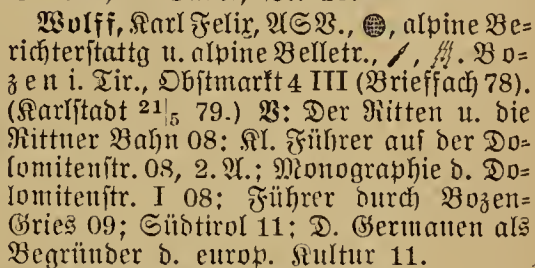 Wolff, Karl Felix, ASV., alpine Be-
richterstattg u. alpine Belletr., Bo-
zen i. Tir., Obstmarkt 4 III (Brieffach 78).
(Karlstadt 21|5 79.) B: Der Ritten u. die
Rittner Bahn 08; Kl. Führer auf der Do-
lomitenstr. 08, 2. A.; Monographie d. Do-
lomitenstr. I 08; Führer durch Bozen-
Gries 09; Südtirol 11; D. Germanen als
Begründer d. europ. Kultur 11.